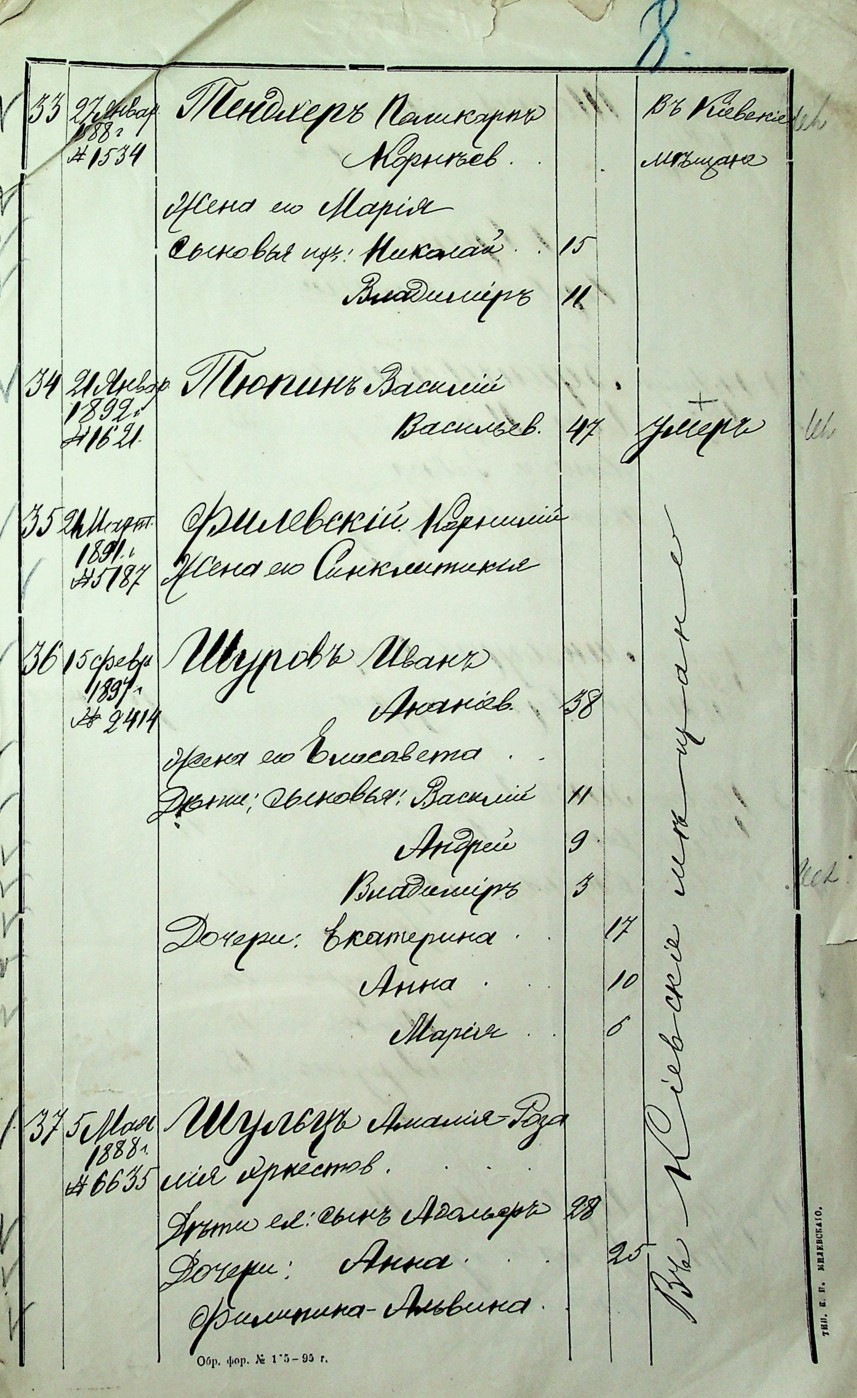 8.
33 27 Январ Тендлеръ Поликарпъ Въ Кіевскіе
188 г. Корнѣев. мѣщане
№ 1534
Жена его Марія
Сыновья ихъ: Николай 15
Владиміръ 11
34 21 Январ Тюпинъ Василій
1892 г. Васильев. 47 умеръ
№ 1621
35 21 Март. Филевскій Корнилій
1891 г.
№ 5187 Жена его Синклитикія
36 15 февр Шуровъ Иванъ
1897 г. Ананіев. 38
№ 2414
Жена его Елисавета
Дѣти: сыновья: Василій 11
Андрей 9
Владиміръ 3
Дочери: Екатерина 17
Анна 10
Марія 6
37 5 Мая Шульцъ Амалія-Роза
1888 г.
№ 6635 лія Эрнестов.
Дѣти ея: сынъ Адольфъ 28
Дочери: Анна 25
Филипина-Альвина
Въ Кіевскіе мѣщане
Обр. фор. № 175–95 г.
ТИП. К. Н. МИЛЕВСКАГО.